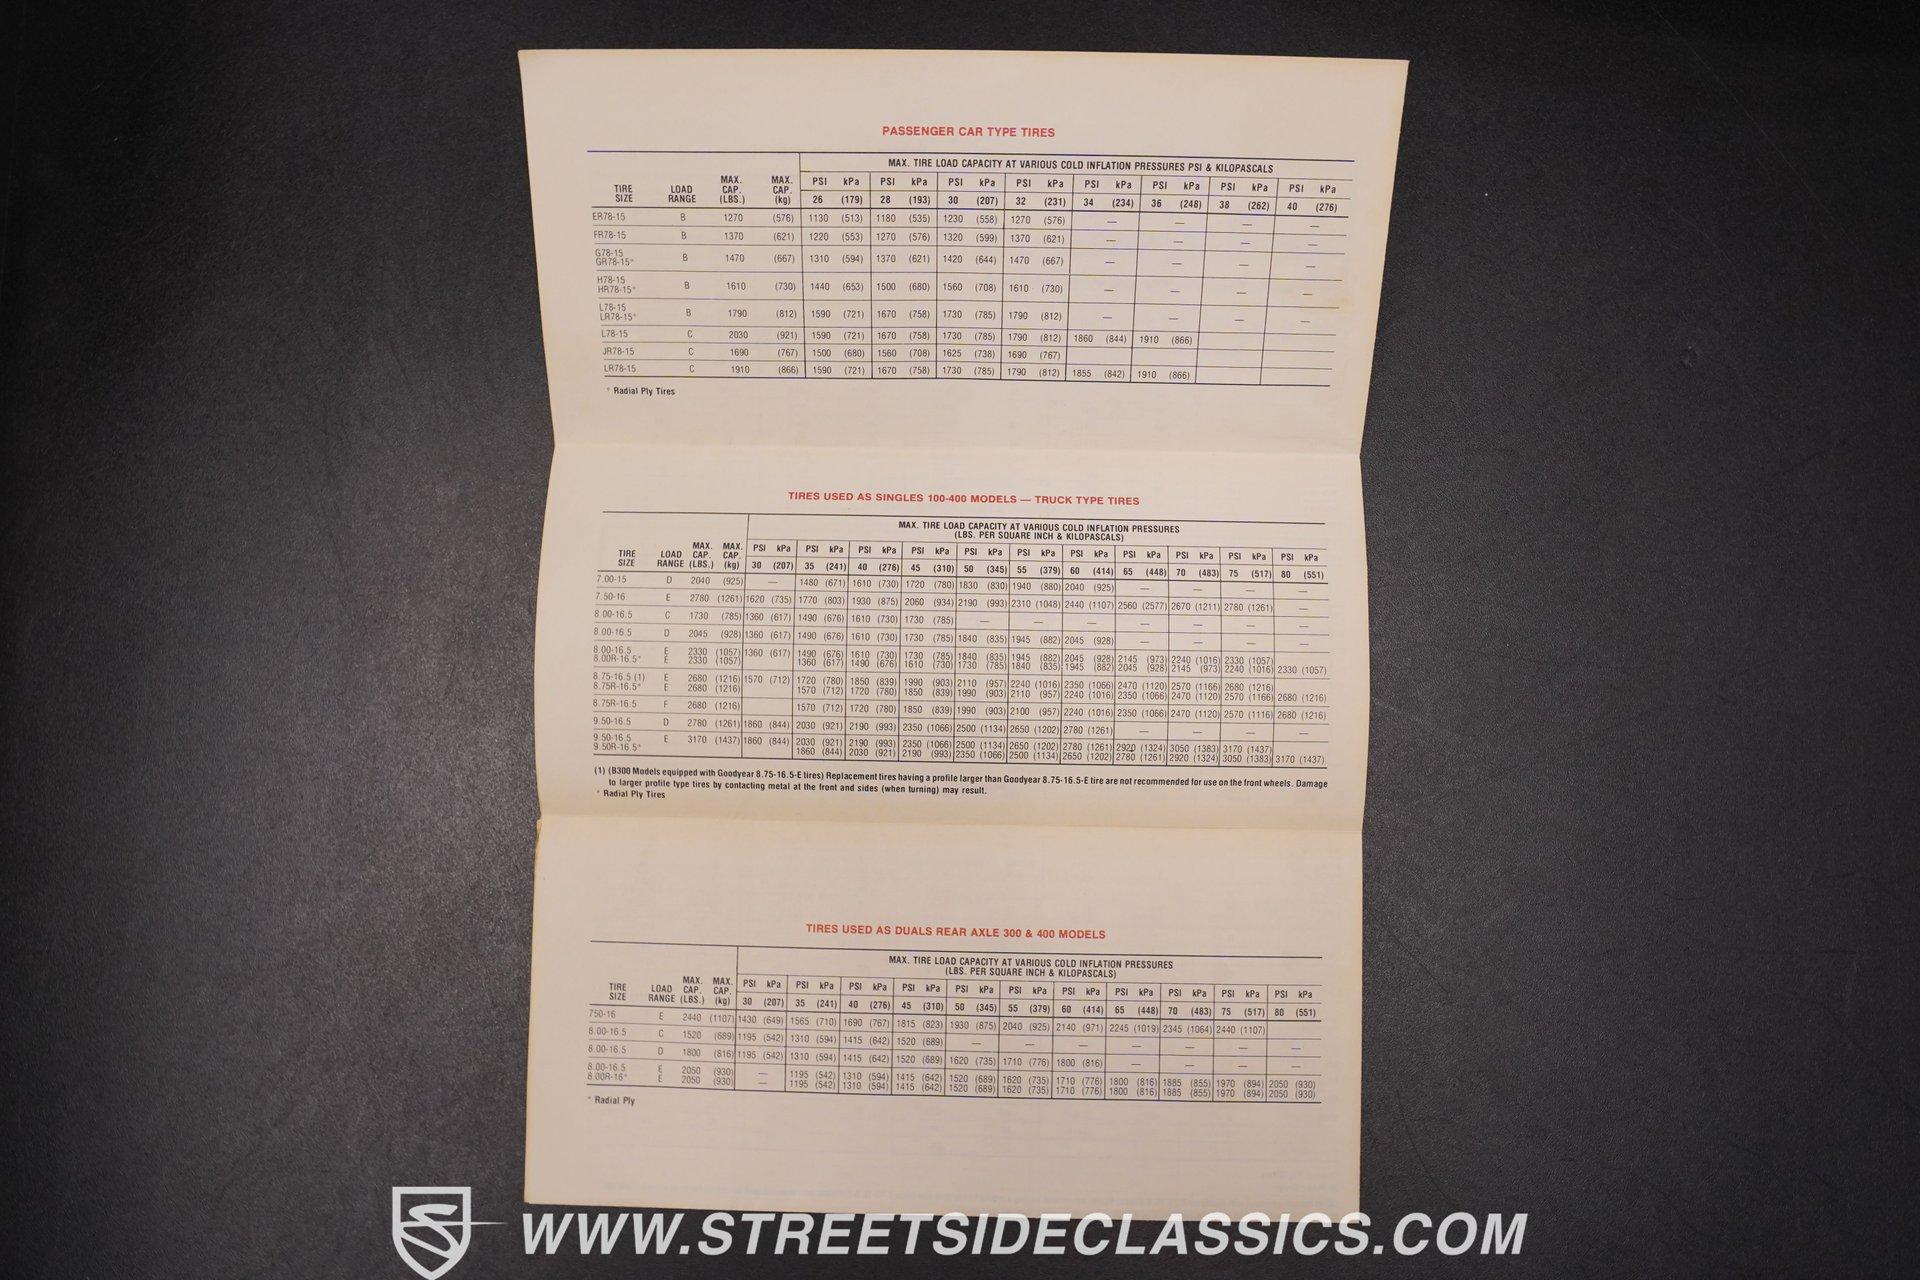 PASSENGER CAR TYPE TIRES
MAX. TIRE LOAD CAPACITY AT VARIOUS COLD INFLATION PRESSURES PSI & KILOPASCALS
TIRE SIZE LOAD RANGE MAX. CAP. (LBS.) MAX. CAP. (kg) PSI kPa PSI kPa PSI kPa PSI kPa PSI kPa PSI kPa PSI kPa PSI kPa
26 (179) 28 (193) 30 (207) 32 (231) 34 (234) 36 (248) 38 (262) 40 (276)
ER78-15 B 1270 (576) 1130 (513) 1180 (535) 1230 (558) 1270 (576) — — — —
FR78-15 B 1370 (621) 1220 (553) 1270 (576) 1320 (599) 1370 (621) — — — —
G78-15
GR78-15* B 1470 (667) 1310 (594) 1370 (621) 1420 (644) 1470 (667) — — — —
H78-15
HR78-15* B 1610 (730) 1440 (653) 1500 (680) 1560 (708) 1610 (730) — — — —
L78-15
LR78-15* B 1790 (812) 1590 (721) 1670 (758) 1730 (785) 1790 (812) — — — —
L78-15 C 2030 (921) 1590 (721) 1670 (758) 1730 (785) 1790 (812) 1860 (844) 1910 (866)
JR78-15 C 1690 (767) 1500 (680) 1560 (708) 1625 (738) 1690 (767)
LR78-15 C 1910 (866) 1590 (721) 1670 (758) 1730 (785) 1790 (812) 1855 (842) 1910 (866)
* Radial Ply Tires
TIRES USED AS SINGLES 100-400 MODELS — TRUCK TYPE TIRES
MAX. TIRE LOAD CAPACITY AT VARIOUS COLD INFLATION PRESSURES
(LBS. PER SQUARE INCH & KILOPASCALS)
TIRE SIZE LOAD RANGE MAX. CAP. (LBS.) MAX. CAP. (kg) PSI kPa PSI kPa PSI kPa PSI kPa PSI kPa PSI kPa PSI kPa PSI kPa PSI kPa PSI kPa PSI kPa
30 (207) 35 (241) 40 (276) 45 (310) 50 (345) 55 (379) 60 (414) 65 (448) 70 (483) 75 (517) 80 (551)
7.00-15 D 2040 (925) — 1480 (671) 1610 (730) 1720 (780) 1830 (830) 1940 (880) 2040 (925) — — — —
7.50-16 E 2780 (1261) 1620 (735) 1770 (803) 1930 (875) 2060 (934) 2190 (993) 2310 (1048) 2440 (1107) 2560 (2577) 2670 (1211) 2780 (1261) —
8.00-16.5 C 1730 (785) 1360 (617) 1490 (676) 1610 (730) 1730 (785) — — — — — — —
8.00-16.5 D 2045 (928) 1360 (617) 1490 (676) 1610 (730) 1730 (785) 1840 (835) 1945 (882) 2045 (928) — — — —
8.00-16.5 E 2330 (1057) 1360 (617) 1490 (676) 1610 (730) 1730 (785) 1840 (835) 1945 (882) 2045 (928) 2145 (973) 2240 (1016) 2330 (1057)
8.00R-16.5* E 2330 (1057) 1360 (617) 1490 (676) 1610 (730) 1730 (785) 1840 (835) 1945 (882) 2045 (928) 2145 (973) 2240 (1016) 2330 (1057)
8.75-16.5 (1) E 2680 (1216) 1570 (712) 1720 (780) 1850 (839) 1990 (903) 2110 (957) 2240 (1016) 2350 (1066) 2470 (1120) 2570 (1166) 2680 (1216)
8.75R-16.5* E 2680 (1216) 1570 (712) 1720 (780) 1850 (839) 1990 (903) 2110 (957) 2240 (1016) 2350 (1066) 2470 (1120) 2570 (1166) 2680 (1216)
8.75R-16.5 F 2680 (1216) 1570 (712) 1720 (780) 1850 (839) 1990 (903) 2100 (957) 2240 (1016) 2350 (1066) 2470 (1120) 2570 (1116) 2680 (1216)
9.50-16.5 D 2780 (1261) 1860 (844) 2030 (921) 2190 (993) 2350 (1066) 2500 (1134) 2650 (1202) 2780 (1261) — — — —
9.50-16.5 E 3170 (1437) 1860 (844) 2030 (921) 2190 (993) 2350 (1066) 2500 (1134) 2650 (1202) 2780 (1261) 2920 (1324) 3050 (1383) 3170 (1437)
9.50R-16.5* 1860 (844) 2030 (921) 2190 (993) 2350 (1066) 2500 (1134) 2650 (1202) 2780 (1261) 2920 (1324) 3050 (1383) 3170 (1437)
(1) (B300 Models equipped with Goodyear 8.75-16.5-E tires) Replacement tires having a profile larger than Goodyear 8.75-16.5-E tire are not recommended for use on the front wheels. Damage
to larger profile type tires by contacting metal at the front and sides (when turning) may result.
* Radial Ply Tires
TIRES USED AS DUALS REAR AXLE 300 & 400 MODELS
MAX. TIRE LOAD CAPACITY AT VARIOUS COLD INFLATION PRESSURES
(LBS. PER SQUARE INCH & KILOPASCALS)
TIRE SIZE LOAD RANGE MAX. CAP. (LBS.) MAX. CAP. (kg) PSI kPa PSI kPa PSI kPa PSI kPa PSI kPa PSI kPa PSI kPa PSI kPa PSI kPa PSI kPa PSI kPa
30 (207) 35 (241) 40 (276) 45 (310) 50 (345) 55 (379) 60 (414) 65 (448) 70 (483) 75 (517) 80 (551)
750-16 E 2440 (1107) 1430 (649) 1565 (710) 1690 (767) 1815 (823) 1930 (875) 2040 (925) 2140 (971) 2245 (1019) 2345 (1064) 2440 (1107)
8.00-16.5 C 1520 (689) 1195 (542) 1310 (594) 1415 (642) 1520 (689) — — — — — — —
8.00-16.5 D 1800 (816) 1195 (542) 1310 (594) 1415 (642) 1520 (689) 1620 (735) 1710 (776) 1800 (816) — — — —
8.00-16.5 E 2050 (930) — 1195 (542) 1310 (594) 1415 (642) 1520 (689) 1620 (735) 1710 (776) 1800 (816) 1885 (855) 1970 (894) 2050 (930)
8.00R-16* E 2050 (930) — 1195 (542) 1310 (594) 1415 (642) 1520 (689) 1620 (735) 1710 (776) 1800 (816) 1885 (855) 1970 (894) 2050 (930)
* Radial Ply
WWW.STREETSIDECLASSICS.COM